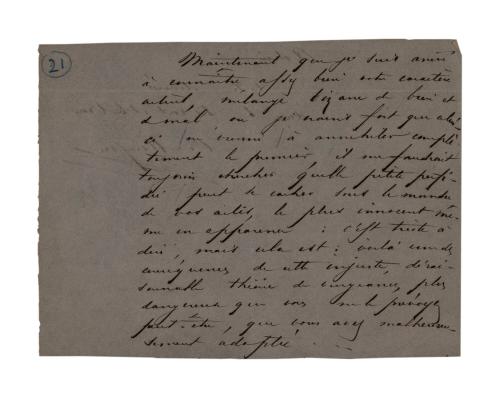 21
Maintenant que je suis arrivé
à connaître assez bien votre caractère
actuel, mélange bizarre de bien et
de mal où je crains fort que celui-
ci ne vienne à annihiler complè-
tement le premier il me faudrait
toujours chercher quelle petite perfi-
die peut se cacher sous le moindre
de vos actes, le plus innocent mê-
me en apparence : c'est triste à
dire, mais cela est : voilà une des
conséquences de cette injuste, dérai-
sonnable théorie de vengeance, plus
dangereuse que vous ne le prévoyez
peut-être, que vous avez malheureu-
sement adoptée.